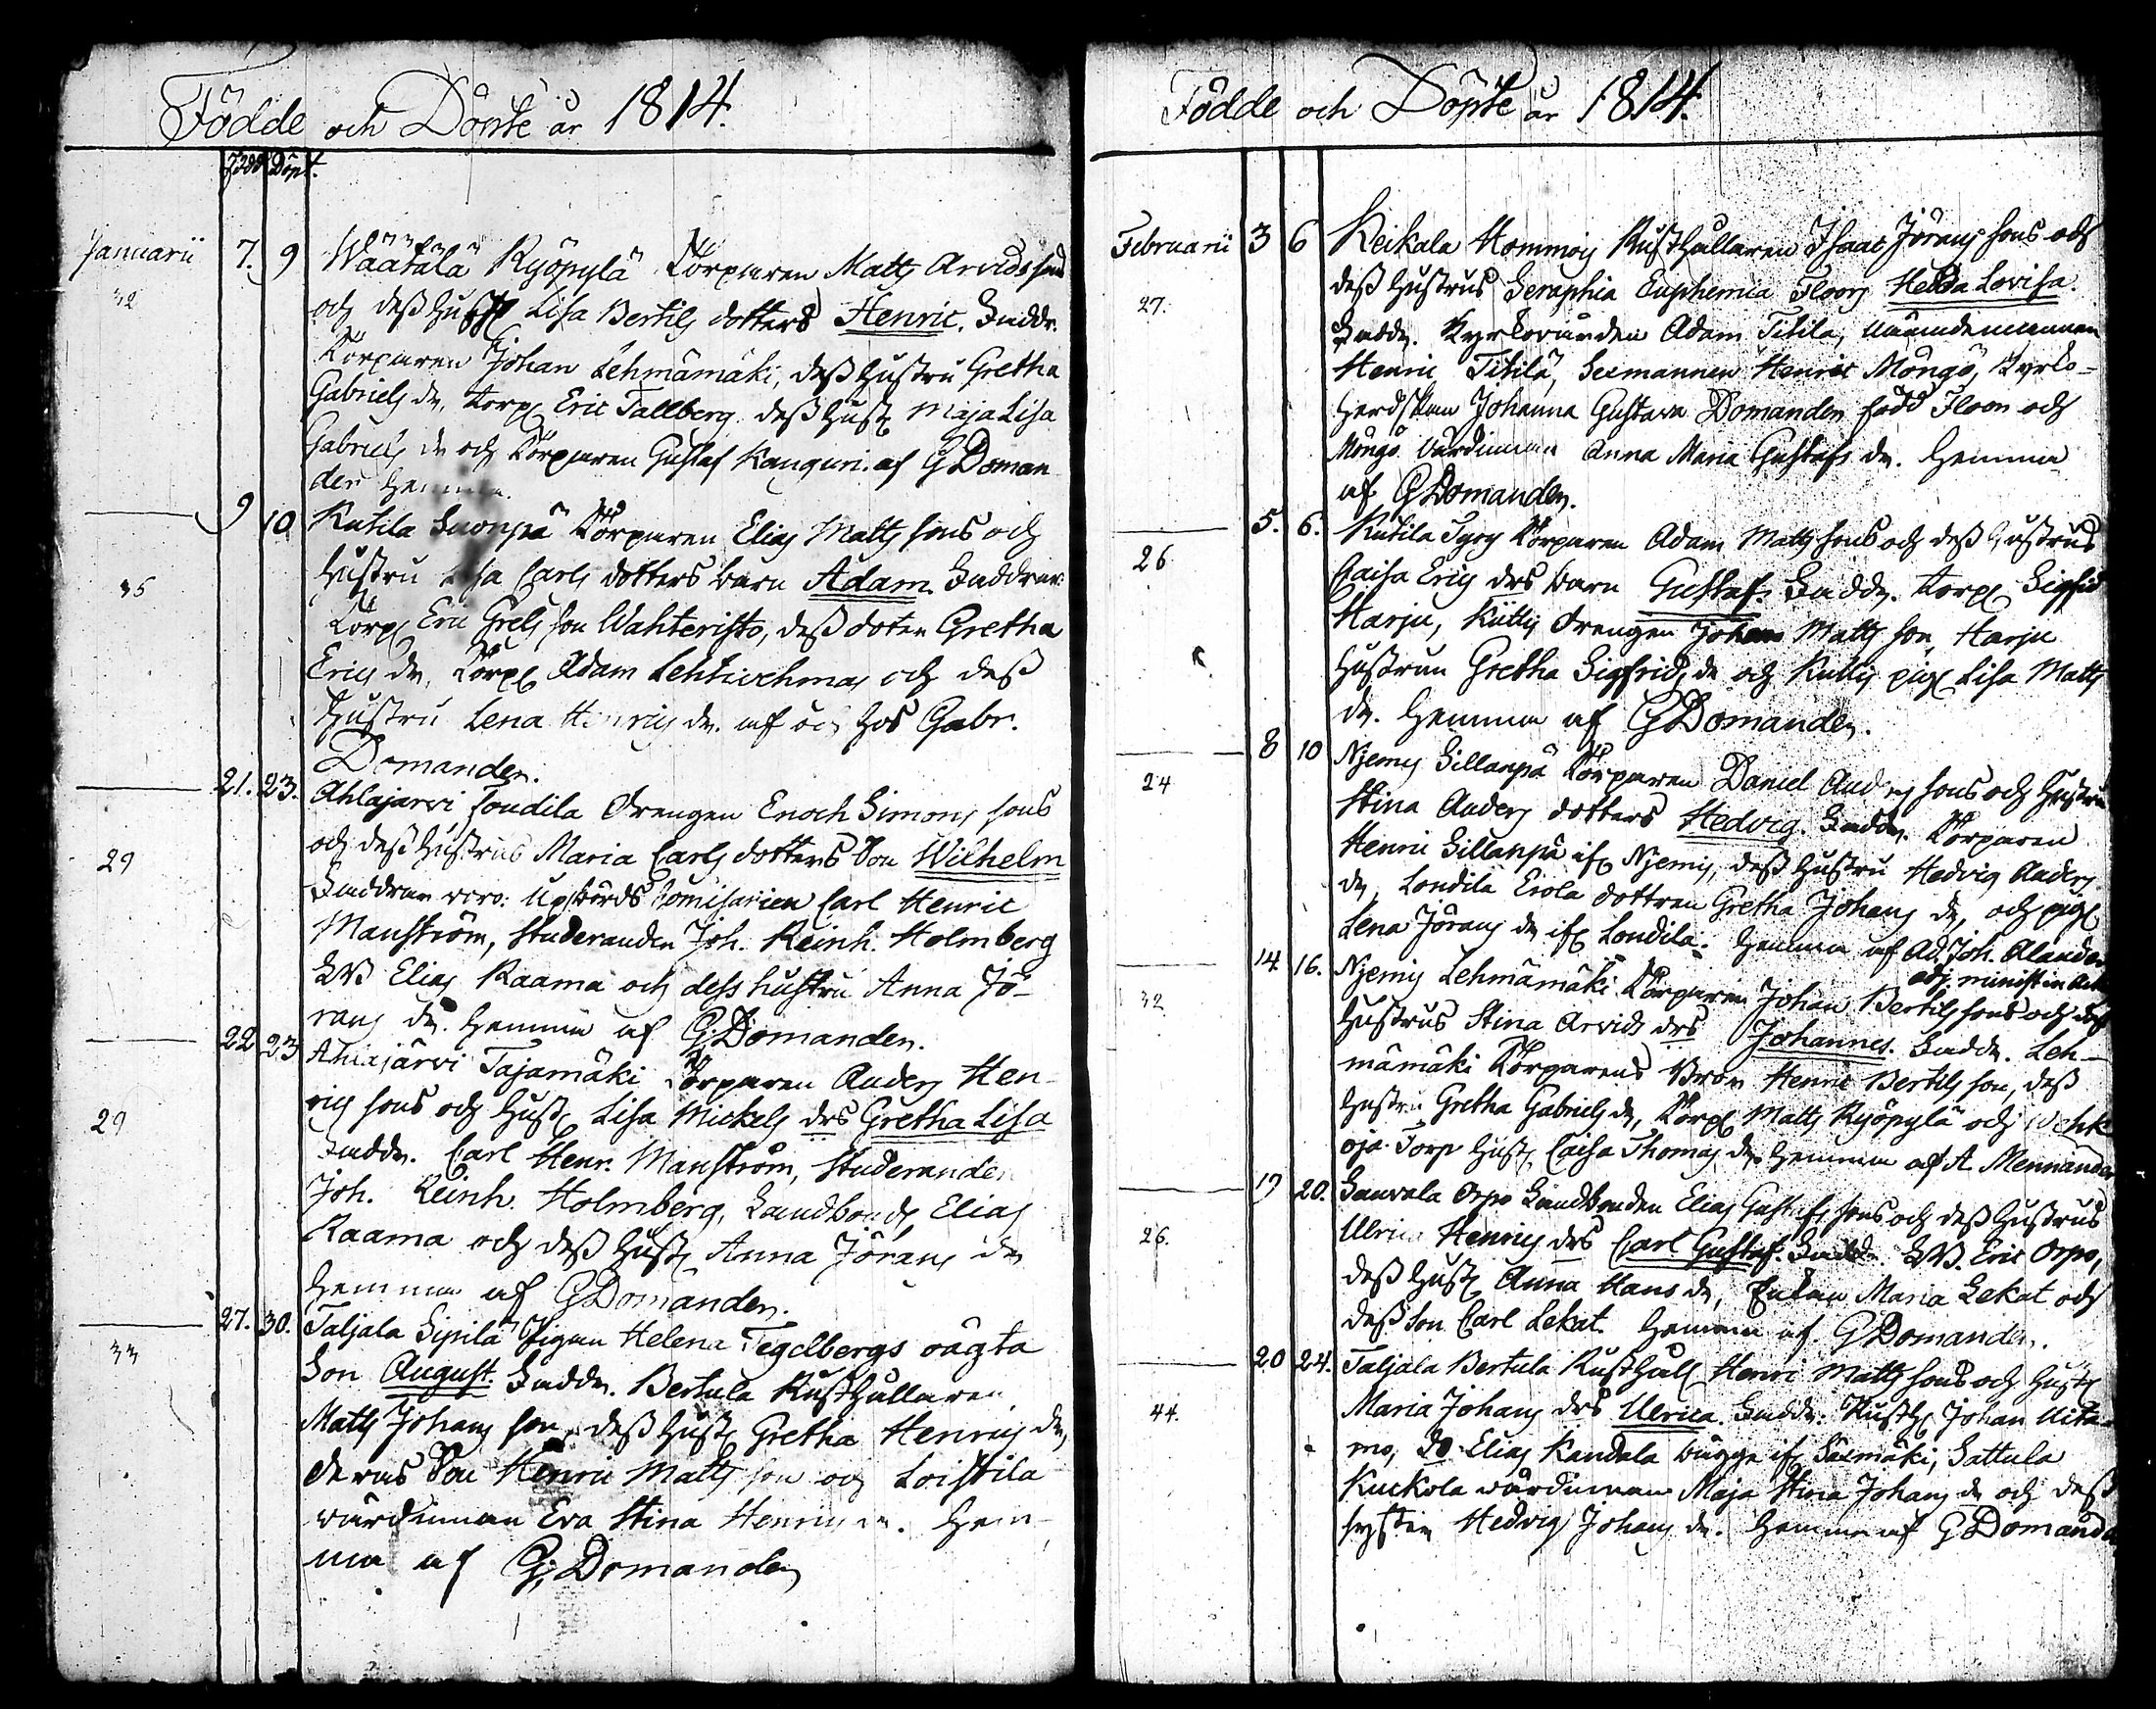 Födde och Döpte år 1814.
Född Döpt.
Januarii 7. 9 Wäätälä Kyöpylä Torparen Matts Arvidssons
32 och dess Hustr Lisa Bertils dotters Henric. Faddr.
Torparen Johan Lehmämäki, dess Hustru Gretha
Gabriels dr, torp Eric Tallberg dess Hust Maja Lisa
Gabriels dr och Torparen Gustaf Kanguri. af G Doman
der Hemma.
9 10 Kutila Suonpä Torparen Elias Matts sons och
35 Hustru Lisa Carls dotters barn Adam. Faddrar
Torp Eric Grels son Wahteristo, dess doter Gretha
Erics dr, Torp Adam Lehtivehmas och dess
Hustru Lena Henrics dr. af och hos Gabr.
Domander.
21. 23. Ahlajärvi Jondila Drengen Enoch Simons sons
29 och dess Hustrus Maria Carls dotters Son Wilhelm
Faddrar voro: Upbörds Comisarien Carl Henric
Manström, Studeranden Joh. Reinh. Holmberg
LB Elias Raama och dess hustru Anna Jö-
rans dr. Hemma af G. Domander.
22 23 Ahlajärvi Tajamäki Torparen Anders Hen-
29 rics sons och Hust Lisa Mickels drs Gretha Lisa
Faddr. Carl Henr. Manström, Studeranden
Joh. Reinh. Holmberg, Landbond Elias
Raama och dess Hust Anna Jörans dr
Hemma af G Domander.
27. 30. Taljala Sipilä Pigan Helena Tegelbergs oägta
33 Son August. Faddr. Bertula Rusthållaren
Matts Johans son, dess Hust Gretha Henrics dr,
deras Son Henric Matts son och Loistila
wärdinnan Eva Stina Henrics dr. Hem-
ma af G. Domander
Födde och Döpte år 1814.
Februarii 3 6 Keikala Hommois Rusthållaren Isaac Jörans sons och
27. dess Hustrus Seraphia Euphemia Floors Hedda Lovisa.
Fadd. Kyrkovärden Adam Titila, Nämdemannen
Henric Titilä, Sexmannen Henric Mongo, Kyrko-
herdskan Johanna Gustava Domander född Floor och
Mongo Värdinnan Anna Maria Gustafs dr. Hemma
af G Domander.
5. 6. Kutila Torparen Adam Matts sons och dess Hustrus
26 Caisa Erics drs barn Gustaf. Fadd. Torp Sigfrid
Harju, Küttis drengen Johan Matts son, Harju
Hustrun Gretha Sigfrids dr och Küttis pig Lisa Matts
dr. Hemma af G Domander.
8 10 Njemis Sillanpä Torparen Daniel Anders sons och Hustru
24 Stina Anders dotters Hedvig. Fadd. Torparen
Henric Sillanpä if Njemis, dess Hustru Hedvig Anders
dr, Londila Erola dottren Gretha Johans dr, och pig
Lena Jörans dr if Londila. Hemma af Ad. Joh. Alander
adj. minist in
14 16. Njemis Lehmämäki Torparen Johan Bertils sons och dess
32 Hustrus Stina Arvids drs Johannes. Fadd. Leh-
mämäki Torparens Bror Henric Bertils son, dess
Hustru Gretha Gabriels dr, Torp Matts Kyöpylä och
oja Torp Hust Caisa Thomas dr Hemma af A Mennander
19 20. Sauvala Orpo Landbonden Elias Gustafs sons och dess Hustrus
26. Ulrica Henrics drs Carl Gustaf. Fadd. LB. Eric Orpo,
dess Hust Anna Hans dr, Enkan Maria Lekat och
dess Son Carl Lekat. Hemma af. G Domander.
20 24. Taljala Bertula Rusthåll Henric Matts sons och Hust
44. Maria Johans drs Ulrica. Fadd. Rusth Johan Uita-
mo, do Elias Kandala bägge if Säxmäki, Sattula
Kuckola wärdinnan Maja Stina Johans dr och dess
syster Hedvig Johans dr. Hemma af G Domander